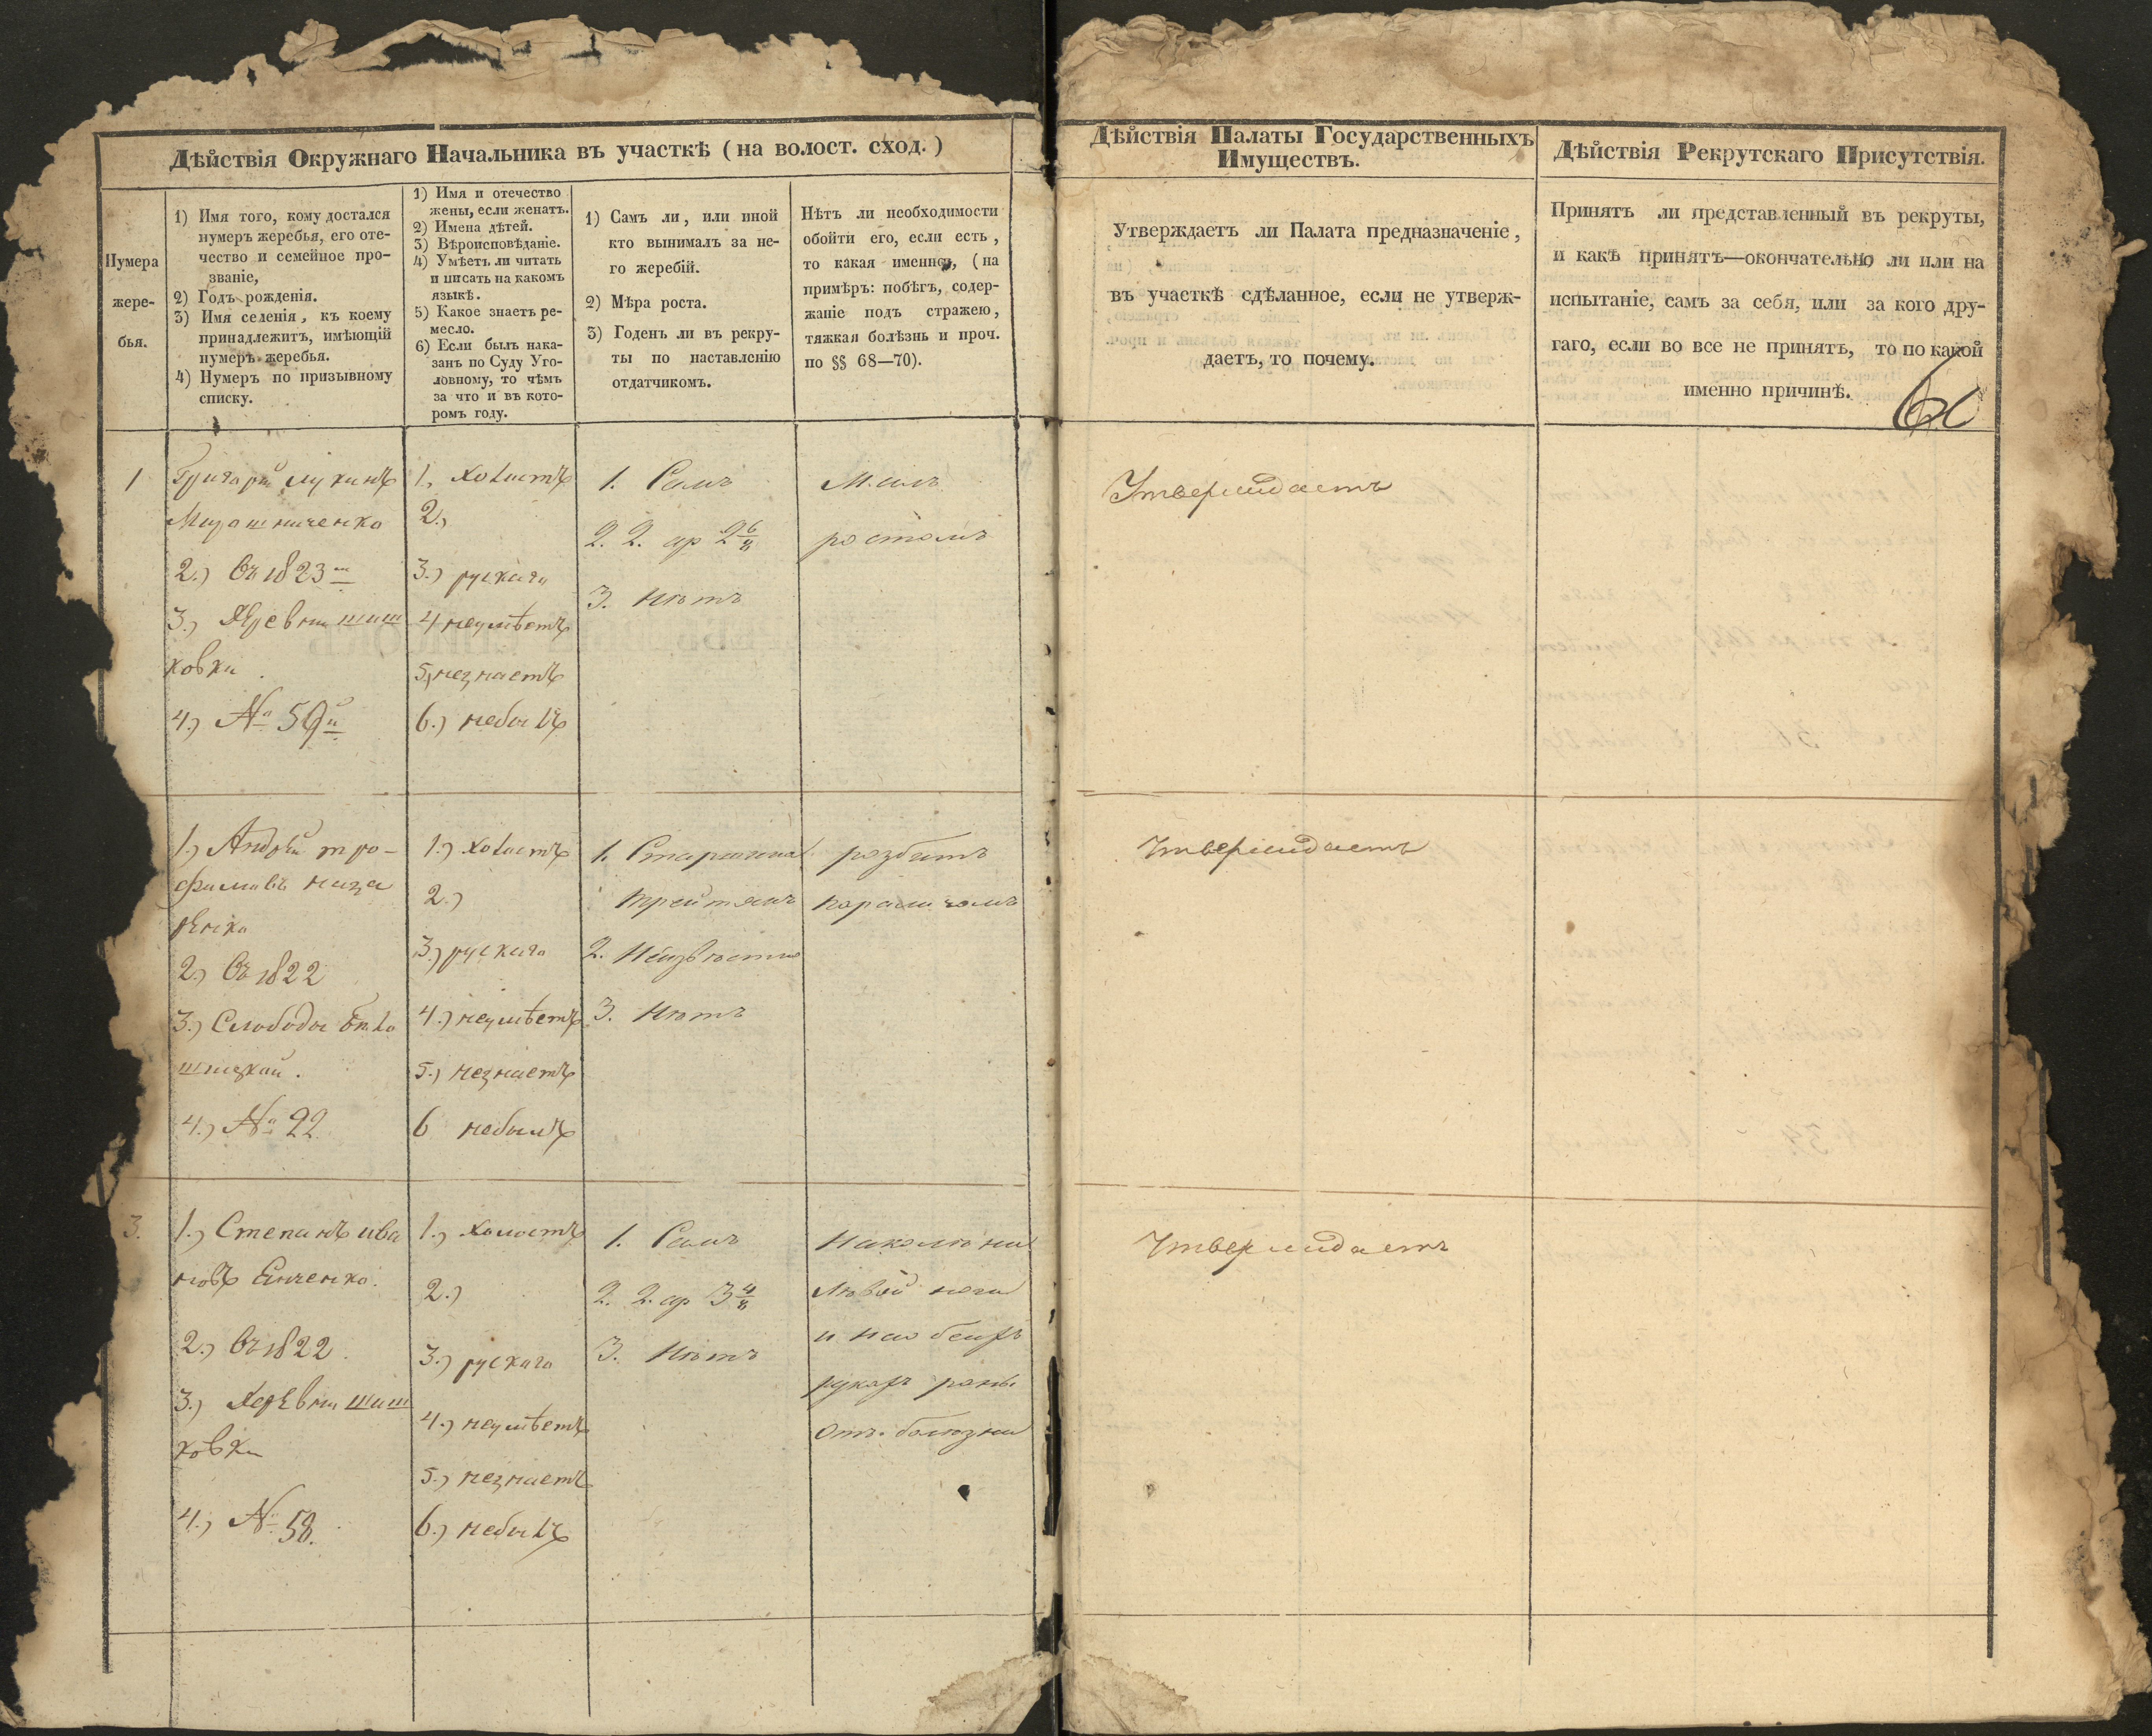 Дѣйствія Окружнаго Начальника въ участкѣ ( на волост. сход. )
Нумера
жере-
бья.
1) Имя того, кому достался
нумеръ жеребья, его оте-
чество и семейное про-
званіе,
2) Годъ рожденія.
3) Имя селенія, къ коему
принадлежитъ, имѣющій
нумеръ жеребья.
4) Нумеръ по призывному
списку.
1) Имя и отечество
жены, если женатъ.
2) Имена дѣтей.
3) Вѣроисповѣданіе.
4) Умѣетъ ли читать
и писать на какомъ
языкѣ.
5) Какое знаетъ ре-
месло.
6) Если былъ нака-
занъ по Суду Уго-
ловному, то чѣмъ
за что и въ кото-
ромъ году.
1) Самъ ли, или иной
кто вынималъ за не-
го жеребій.
2) Мѣра роста.
3) Годенъ ли въ рекру-
ты по наставленію
отдатчикомъ.
Нѣтъ ли необходимости
обойти его, если есть,
то какая именно, (на
примѣръ: побѣгъ, содер-
жаніе подъ стражею,
тяжкая болѣзнь и проч.
по §§ 68—70).
Дѣйствія Палаты Государственныхъ
Имуществъ.
Утверждаетъ ли Палата предназначеніе,
въ участкѣ сдѣланное, если не утверж-
даетъ, то почему.
Дѣйствія Рекрутскаго Присутствія.
Принятъ ли представленный въ рекруты,
и какъ принятъ—окончательно ли или на
испытаніе, самъ за себя, или за кого дру-
гаго, если во все не принятъ, то по какой
именно причинѣ.
1
Григорій лукинъ
Мирошниченко
2.) Въ 1823 м
3.) Деревни шиш
ковки
4.) № 59й
1., Холостъ
2.,
3.) рускаго
4 неумѣетъ
5, незнаетъ
6.) небылъ
1. Самъ
2. 2. ар 2 6/8
3. Нѣтъ
Малъ
ростомъ
Утверждаетъ
1.) Андрѣй тро-
фимовъ наза
рѣнко
2.) Въ 1822
3.) Слободы Бѣло
4.) № 22
1.) Холостъ
2.)
3.) рускаго
4.) неумѣетъ
5.) незнаетъ
6 небылъ
1. Старшина
2. Неизвѣстно
3. Нѣтъ
разбитъ
параличомъ
Утверждаетъ
3.
1.) Степанъ ива
новъ Енченко.
2.) Въ 1822
3.) Деревни шиш
ковки
4.) № 58.
1.) Холостъ
2.)
3.) рускаго
4.) неумѣетъ
5.) незнаетъ
6.) небылъ
1. Самъ
2. 2. ар 3 4/8
3. Нѣтъ
Наколѣни
лѣвой ноги
и на обеихъ
рукахъ раны
отъ болѣзни
Утверждаетъ